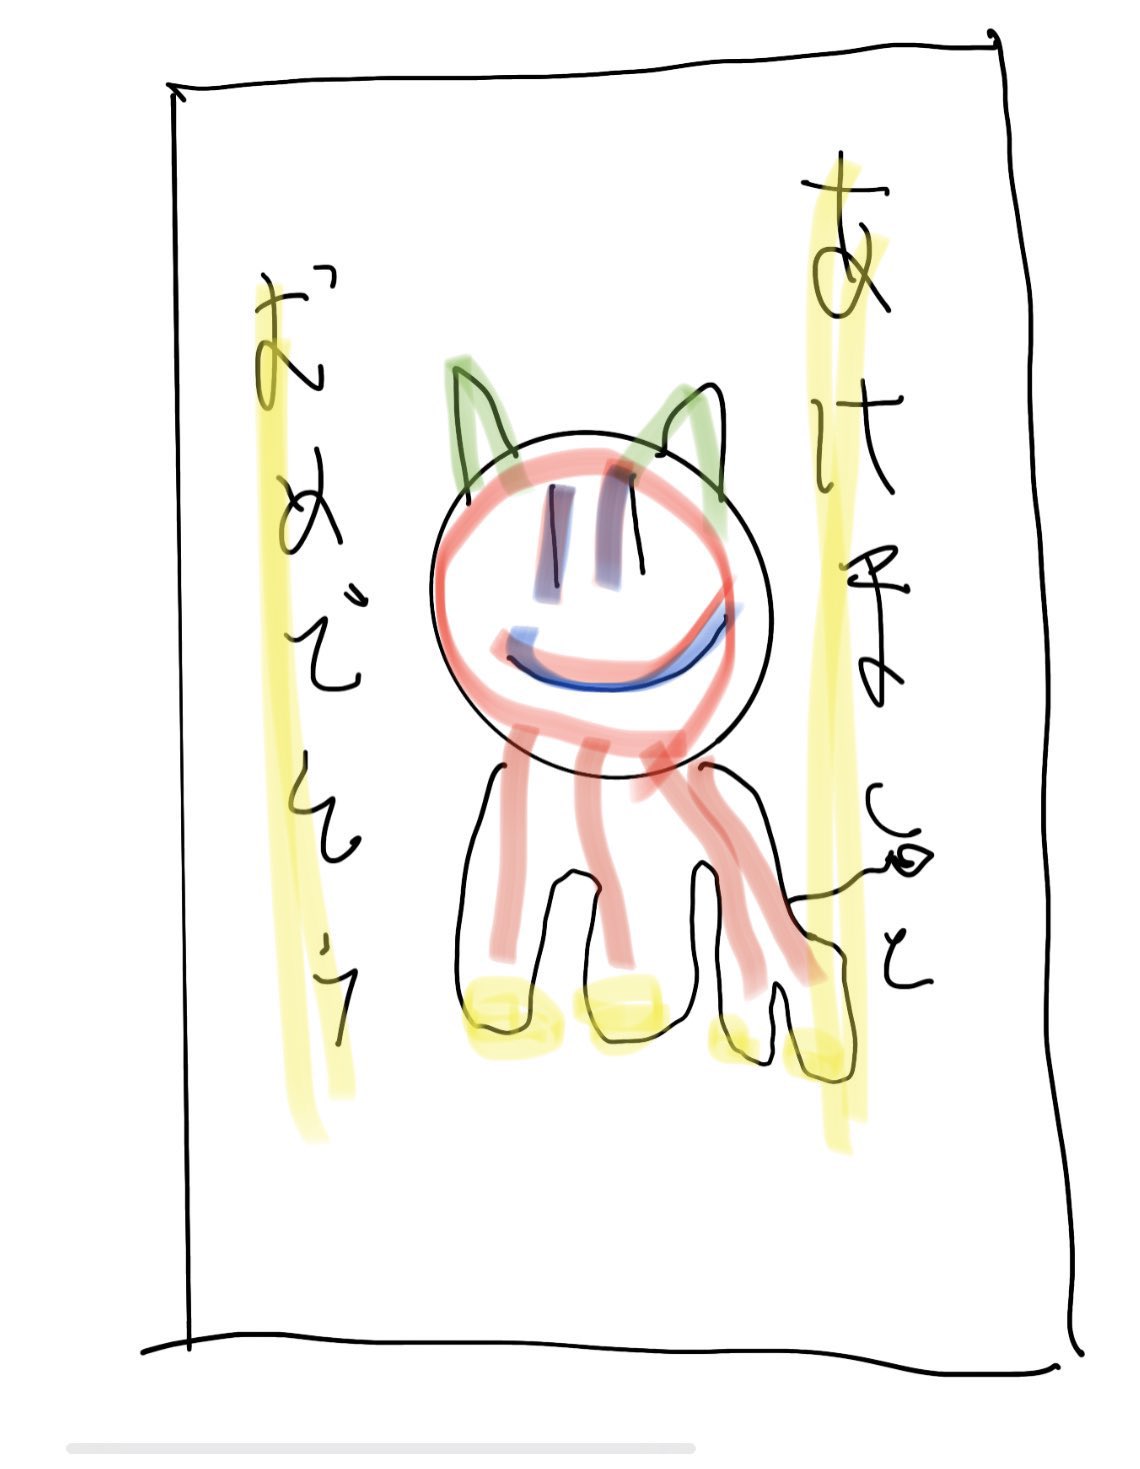 あけましと
おめでとう